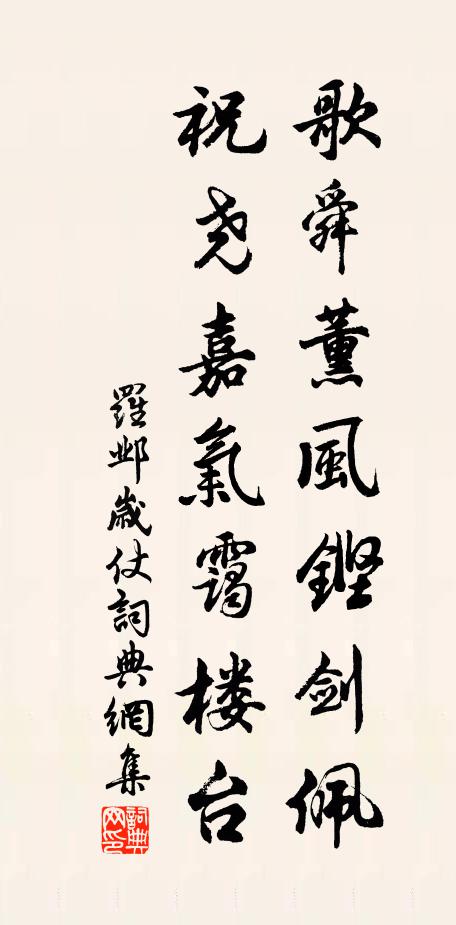 歌舜薰風鏗剑佩
祝尧嘉氣靄楼台
羅邺歲仗詞典網集
詞典网印